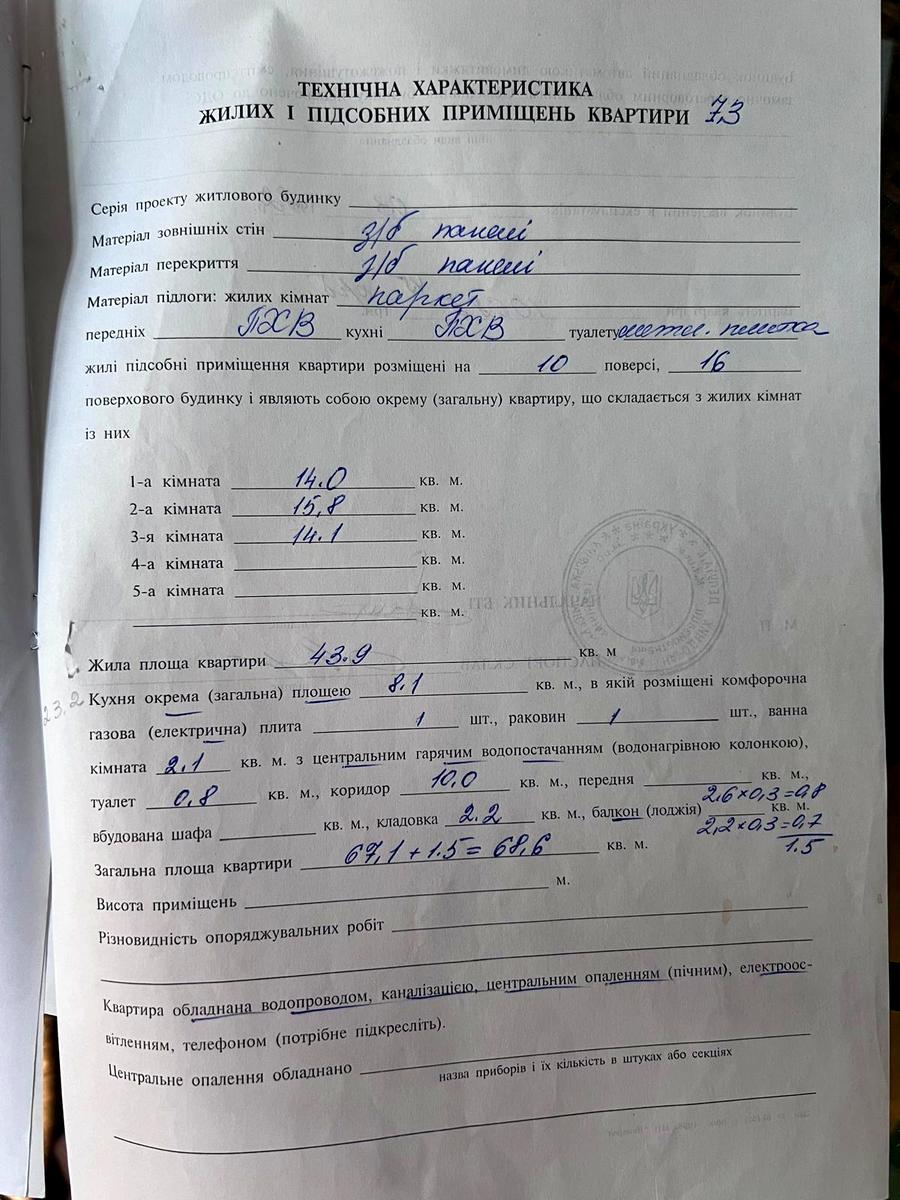 ТЕХНІЧНА ХАРАКТЕРИСТИКА
ЖИЛИХ І ПІДСОБНИХ ПРИМІЩЕНЬ КВАРТИРИ 73
Серія проекту житлового будинку
Матеріал зовнішніх стін з/б панелі
Матеріал перекриття з/б панелі
Матеріал підлоги: жилих кімнат паркет
передніх ПХВ кухні ПХВ туалету метл. плитка
жилі підсобні приміщення квартири розміщені на 10 поверсі, 16
поверхового будинку і являють собою окрему (загальну) квартиру, що складається з жилих кімнат
із них
1-а кімната 14.0 кв. м.
2-а кімната 15,8 кв. м.
3-я кімната 14.1 кв. м.
4-а кімната кв. м.
5-а кімната кв. м.
кв. м.
Жила площа квартири 43.9 кв. м
23.2
Кухня окрема (загальна) площею 8.1 кв. м., в якій розміщені комфорочна
газова (електрична) плита 1 шт., раковин 1 шт., ванна
кімната 2.1 кв. м. з центральним гарячим водопостачанням (водонагрівною колонкою),
туалет 0,8 кв. м., коридор 10,0 кв. м., передня кв. м.,
2,6×0,3=0,8
вбудована шафа кв. м., кладовка 2.2 кв. м., балкон (лоджія) кв. м.
2,2×0,3=0,7
1.5
Загальна площа квартири 67,1 + 1.5 = 68,6 кв. м.
Висота приміщень м.
Різновидність опоряджувальних робіт
Квартира обладнана водопроводом, каналізацією, центральним опаленням (пічним), електроос-
вітленням, телефоном (потрібне підкресліть).
Центральне опалення обладнано
назва приборів і їх кількість в штуках або секціях